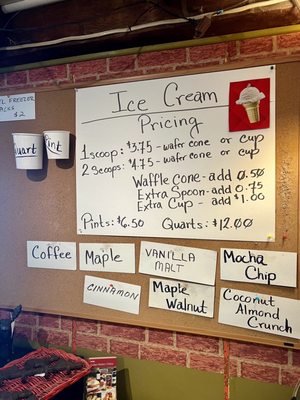 Ice Cream
Pricing
1 scoop: $3.75 - wafer cone or cup
2 scoops: $4.75 - wafer cone or cup
Waffle Cone - add 0.50
Extra Spoon - add 0.75
Extra Cup - add $1.00
Pints: $6.50 Quarts: $12.00
FREEZER
PACKS
$2
Quart
Pint
Coffee
Maple
VANILLA
MALT
Mocha
Chip
CINNAMON
Maple
Walnut
Coconut
Almond
Crunch